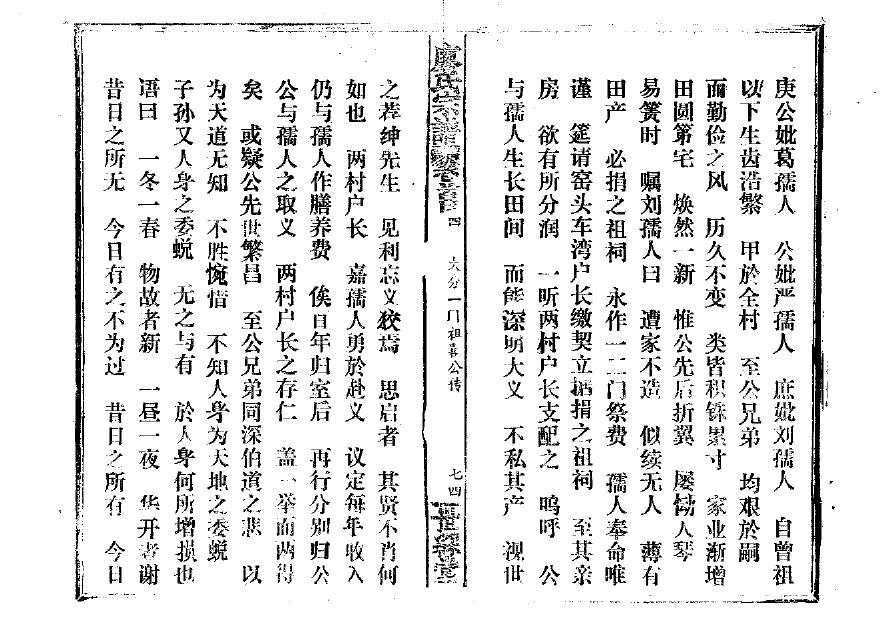 庚公妣葛孺人 公妣严孺人 庶妣刘孺人 自曾祖
以下生齿浩繁 甲於全村 至公兄弟 均艰於嗣
而勤俭之风 历久不变 类皆积铢累寸 家业渐增
田圆第宅 焕然一新 惟公先后折翼 屡恸人琴
易箦时 嘱刘孺人曰 遭家不造 似续无人 薄有
田产 必捐之祖祠 永作一二门祭费 孺人奉命唯
谨 筵请窑头车湾户长缴契立据捐之祖祠 至其亲
房 欲有所分润 一听两村户长支配之 呜呼 公
与孺人生长田间 而能深明大义 不私其产 视世
廖氏宗谱 卷首 四 大分一门祖喜公传 七四
之荐绅先生 见利忘义狡焉 思启者 其贤不肖何
如也 两村户长 嘉孺人勇於赴义 议定每年收入
仍与孺人作膳养费 俟百年归室后 再行分别归公
公与孺人之取义 两村户长之存仁 盖一举而两得
矣 或疑公先世繁昌 至公兄弟同深伯道之悲 以
为天道无知 不胜惋惜 不知人身为天地之委蜕
子孙又人身之委蜕 无之与有 於人身何所增损也
语曰 一冬一春 物故者新 一昼一夜 华开者谢
昔日之所无 今日有之不为过 昔日之所有 今日